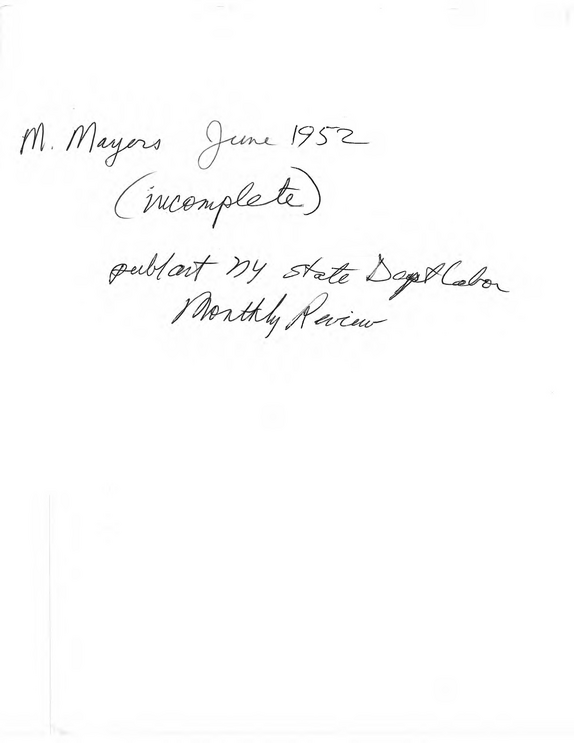 M. Mayers June 1952
(incomplete)
publ art NY State Dept Labor
Monthly Review